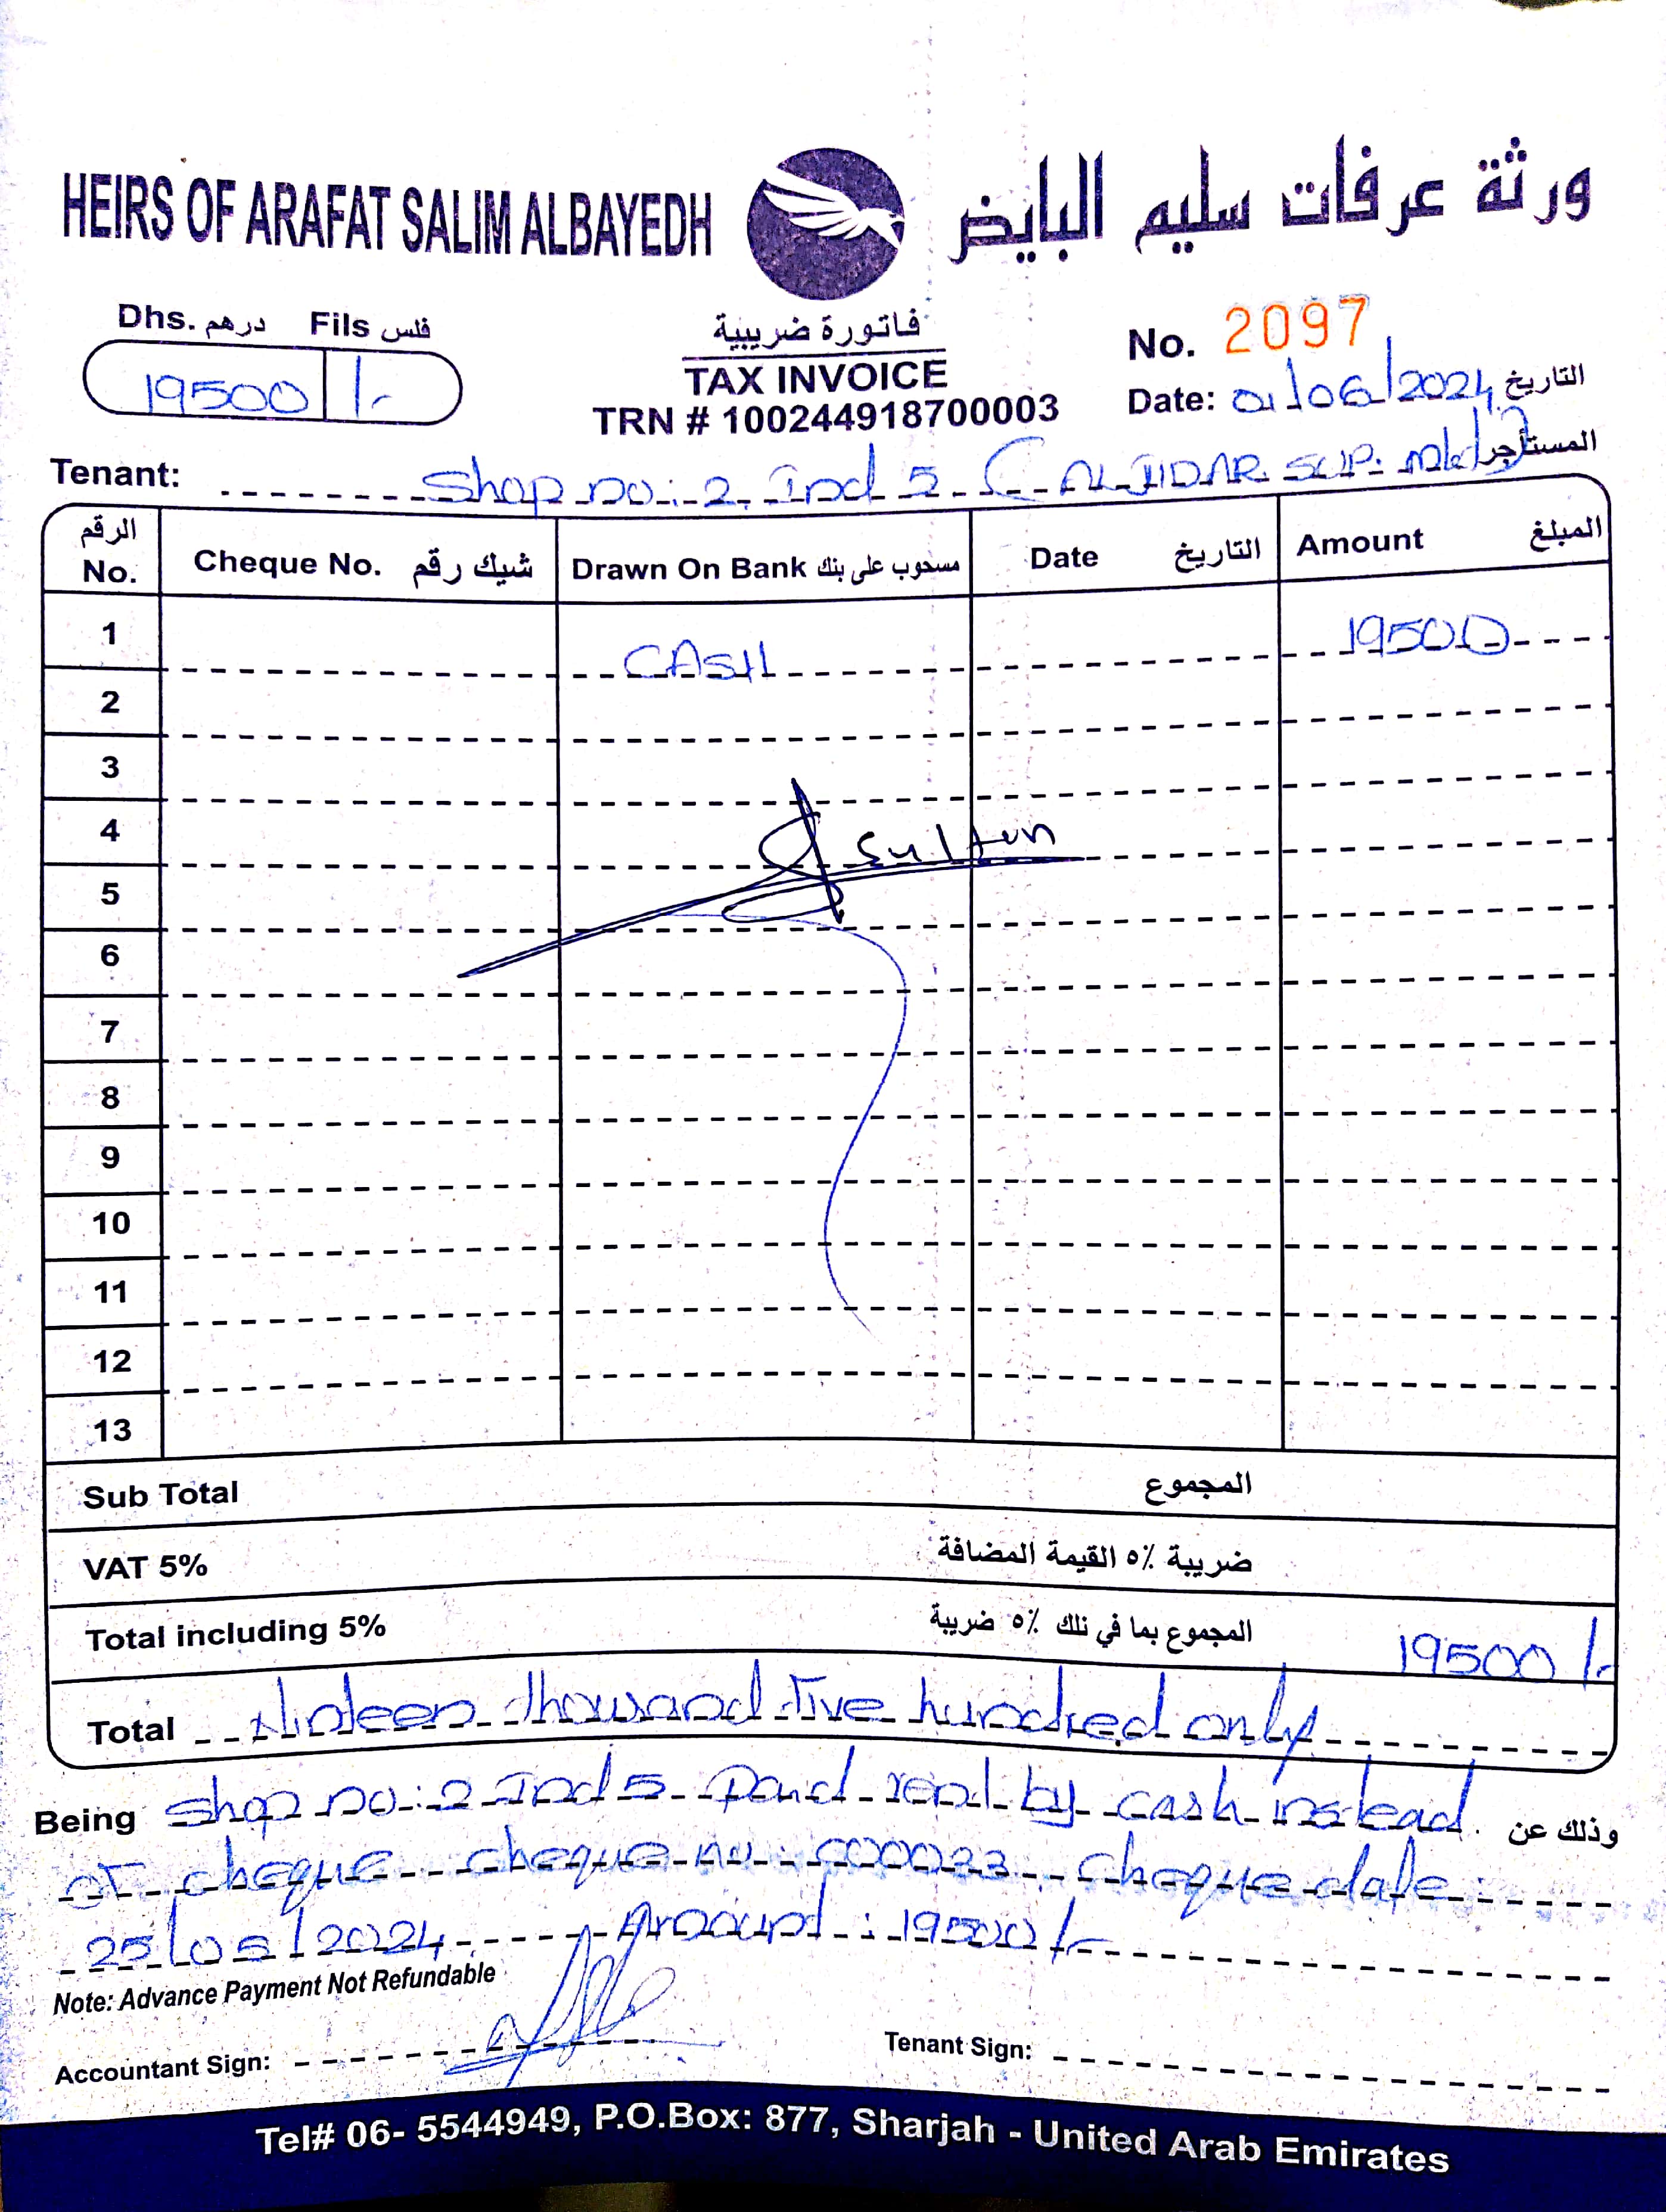 HEIRS OF ARAFAT SALIM ALBAYEDH ورثة عرفات سليم البايض
Dhs. درهم Fils فلس
19500 /-
فاتورة ضريبية
TAX INVOICE
TRN # 100244918700003
No. 2097
Date: 01/06/2024 التاريخ
Tenant: Shop no: 2, Ind 5 ( AL JIDAR SUP. Mkt) المستأجر
الرقم No. Cheque No. شيك رقم Drawn On Bank مسحوب على بنك Date التاريخ Amount المبلغ
1 CASH 19500
2
3
4 Sultan
5
6
7
8
9
10
11
12
13
Sub Total المجموع
VAT 5% ضريبة ٥٪ القيمة المضافة
Total including 5% المجموع بما في ذلك ٥٪ ضريبة 19500/-
Total Ninteen thousand five hundred only
Being Shop no: 2 Ind 5 Paid rent by cash instead وذلك عن
of cheque cheque no: 000033 Cheque date:
25/05/2024 Amount: 19500/-
Note: Advance Payment Not Refundable
Accountant Sign: Tenant Sign:
Tel# 06- 5544949, P.O.Box: 877, Sharjah - United Arab Emirates